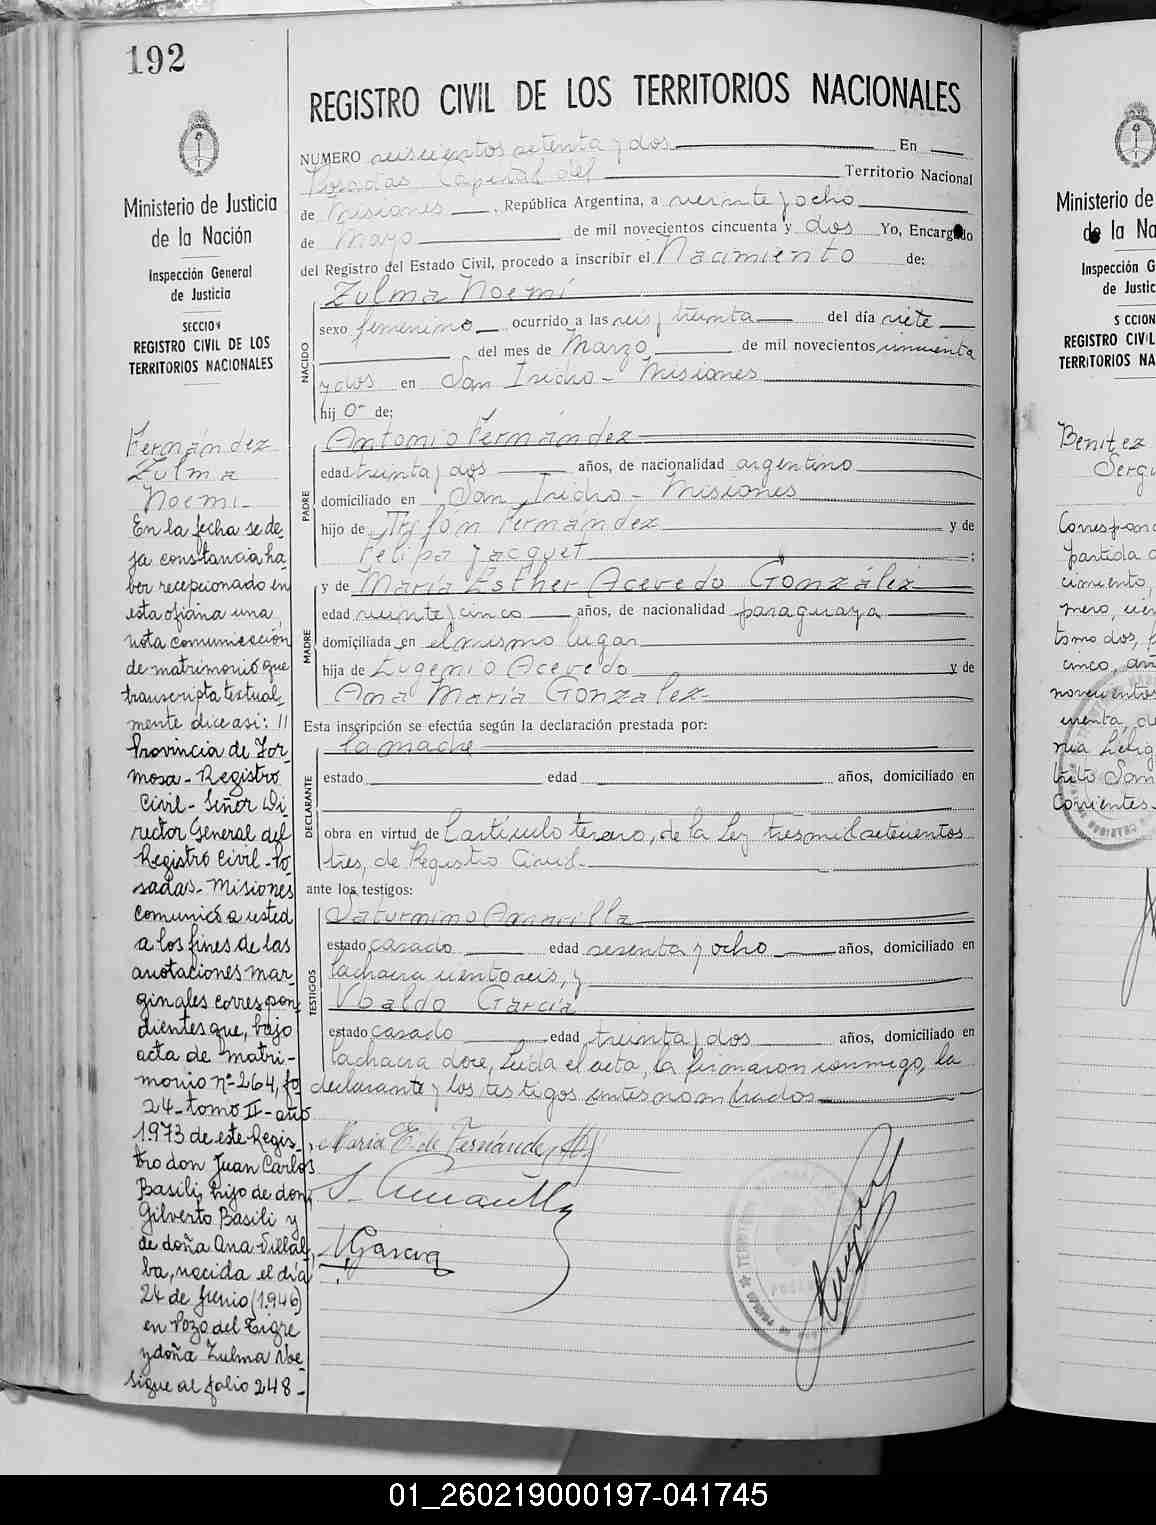 192
REGISTRO CIVIL DE LOS TERRITORIOS NACIONALES
Ministerio de Justicia
de la Nación
Inspección General
de Justicia
SECCION
REGISTRO CIVIL DE LOS
TERRITORIOS NACIONALES
NUMERO seiscientos setenta y dos En
Posadas Capital del Territorio Nacional
de Misiones, República Argentina, a veinte y ocho
de Mayo de mil novecientos cincuenta y dos Yo, Encargado
del Registro del Estado Civil, procedo a inscribir el Nacimiento de:
NACIDO
Zulma Noemí
sexo femenino ocurrido a las seis y treinta del día siete
del mes de Marzo de mil novecientos cincuenta
y dos en San Isidro - Misiones
hij a de:
PADRE
Antonio Fernández
edad treinta y dos años, de nacionalidad argentino
domiciliado en San Isidro - Misiones
hijo de Trifon Fernández y de
Felipa Jacquet;
MADRE
y de María Esther Acevedo González
edad veinte y cinco años, de nacionalidad paraguaya
domiciliada en el mismo lugar
hija de Eugenio Acevedo y de
Ana María Gonzalez
Esta inscripción se efectúa según la declaración prestada por:
DECLARANTE
la madre
estado edad años, domiciliado en
obra en virtud de l'artículo tercero, de la Ley tres mil setecientos
tres, de Registro Civil.
ante los testigos:
TESTIGOS
Saturnino Amarilla
estado casado edad sesenta y ocho años, domiciliado en
lachacra ciento seis, y
Ubaldo García
estado casado edad treinta y dos años, domiciliado en
lachacra doce, Leída el acta, la firmaron conmigo, la
declarante y los testigos antes nombrados
María E. de Fernández
S. Amarilla
U. Garcia
Fernández
Zulma
Noemí
En la fecha se de-
ja constancia ha-
ber recepcionado en
esta oficina una
nota comunicación
de matrimonio que
transcripta textual-
mente dice asi: "
Provincia de For-
mosa - Registro
Civil - Señor Di-
rector General del
Registro Civil - Po-
sadas - Misiones
Comunico a usted
a los fines de las
anotaciones mar-
ginales correspon-
dientes que, bajo
acta de matri-
monio nº 264, fo
24 - tomo II - año
1.973 de este Regis-
tro don Juan Carlos
Basili, hijo de don
Gilverto Basili y
de doña Ana Villal-
ba, nacida el día
24 de Junio (1.946)
en Pozo del Tigre
y doña Zulma Noe-
sigue al folio 248 -
Ministerio de
de la Na
Inspección G
de Justic
S CCION
REGISTRO CIVIL
TERRITORIOS NA
Benitez
Sergi
Correspond
partida d
cimiento,
mero, cien
tomo dos, f
cinco, añ
novecientos
cuenta, de
trito San
Corrientes
01_260219000197-041745